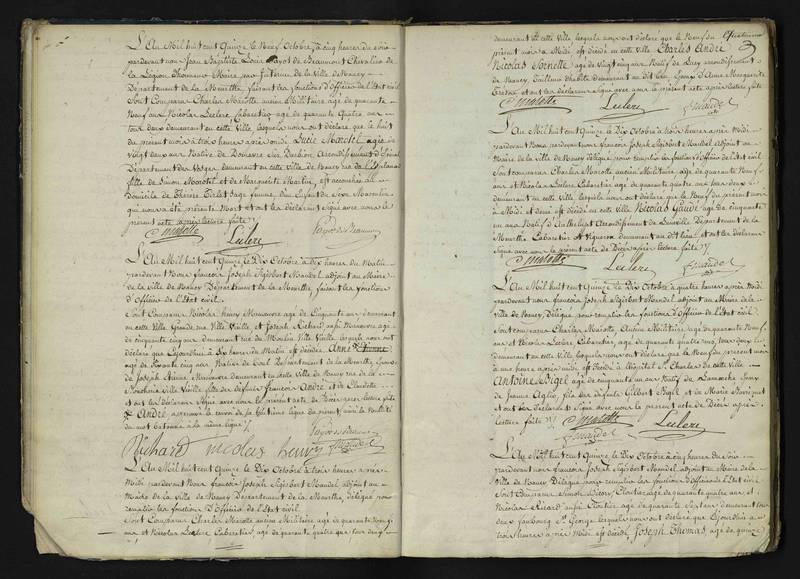 L'An Mil huit cent Quinze le Neuf Octobre, à cinq heures du soir
pardevant nous Jean Baptiste Louis Payot de Beaumont Chevalier de
la Légion d'honneur Maire par Interim de la Ville de Nancy
Département de la Meurthe, faisant les fonctions d'Officier de l'Etat civil
sont Comparus Charles Marotte ancien Militaire agé de quarante
Neuf ans Nicolas Leclere Cabaretier agé de quarante Quatre ans
tous deux demeurant en cette Ville, lesquels nous ont déclaré que le huit
du présent mois à trois heures après midi Lucie Marchal agée de
vingt deux ans Native de Arrondissement d'Epinal
Département des Vosges demeurant en cette Ville de Nancy rue de l'Esplanade
fille de Simon et de Marguerite Martin, est accouchée au
Domicile de Thérèse sage femme, d'un Enfant du Sexe Masculin
qui nous a été présenté Mort et ont les déclarans signé avec nous le
présent acte après lecture faite
C. Marotte Leclere Payot de Beaumont
L'An Mil huit cent Quinze le Dix Octobre à dix heures du Matin
pardevant Nous françois Joseph Sigisbert Mandel adjoint au Maire
de la Ville de Nancy Département de la Meurthe, faisant les fonctions
d'Officier de l'Etat civil.
Sont Comparus Nicolas henry Manœuvre agé de Cinquante ans demeurant
en cette Ville Grande rue Ville Vieille et Joseph Richard aussi Manœuvre agé
de cinquante cinq ans demeurant rue du Moulin Ville Vieille lesquels nous ont
déclaré que Cejourd'hui à Six heures du Matin est décédée Anne Etienne
agée de soixante cinq ans Native de Toul Département de la Meurthe, Epouse
de Joseph Etienne Manœuvre demeurant en cette Ville de Nancy rue de la
Boucherie Ville Vieille fille de défunts françois André et de Claudette
et ont les déclarans signé avec nous le présent acte de Décès après lecture faite
André approuvé le renvoi de la huitième ligne du présent ainsi la Nullité
du mot batonné à la même ligne
Richard nicolas henry Mandel
L'An Mil huit cent Quinze le Dix Octobre à trois heures après
Midi pardevant Nous françois Joseph Sigisbert Mandel, adjoint au
Maire de la Ville de Nancy Département de la Meurthe, délégué pour
remplir les fonctions d'Officier de l'Etat civil.
Sont Comparus Charles Marotte ancien Militaire agé de quarante Neuf
ans et Nicolas Leclere Cabaretier, agé de quarante quatre ans, tous deux
demeurant en cette Ville lesquels nous ont déclaré que le Neuf du
présent mois à Midi est décédé en cette ville Charles André
Nicolas agé de vingt cinq ans Natif de arrondissement
de Nancy, Tailleur d'habits demeurant au dit lieu Epoux d'Anne Marguerite
et ont les déclarans signé avec nous le présent acte après lecture faite
C. Marotte Leclere Mandel
L'An Mil huit cent Quinze le Dix Octobre à trois heures après Midi
pardevant Nous françois Joseph Sigisbert Mandel Adjoint au
Maire de la Ville de Nancy délégué pour remplir les fonctions d'Officier de l'Etat civil
sont comparus Charles Marotte ancien Militaire, agé de quarante Neuf
ans et Nicolas Leclere Cabaretier agé de quarante quatre ans tous deux
demeurant en cette Ville lesquels nous ont déclaré que le Neuf du présent mois
à Midi est décédé en cette ville Nicolas Gaudé agé de cinquante
un ans Natif d'Anthelupt Arrondissement de Lunéville Département de la
Meurthe Cabaretier et Vigneron demeurant au dit lieu et ont les déclarans
signé avec nous le présent acte de Décès après lecture faite
C. Marotte Leclere Mandel
L'An Mil huit cent Quinze le Dix Octobre à quatre heures après Midi
pardevant nous françois Joseph Sigisbert Mandel adjoint au Maire de la
Ville de Nancy, délégué pour remplir les fonctions d'Officier de l'Etat civil
sont comparus Charles Marotte, Ancien Militaire agé de quarante Neuf
ans et Nicolas Leclere Cabaretier, agé de quarante quatre ans, tous deux
demeurant en cette Ville lesquels nous ont déclaré que le Neuf du présent mois
à une heure après midi est décédé à l'hôpital St Charles de cette Ville
Antoine Bigel agé de cinquante un ans Natif de Epoux
de Jeanne fils des défunts Gilbert Bigel et de Marie
et ont les déclarans signé avec nous le présent acte de Décès après
lecture faite C. Marotte
Mandel Leclere
L'An Mil huit cent Quinze le Dix Octobre à cinq heures du Soir
pardevant nous françois Joseph Sigisbert Mandel adjoint au Maire de la
Ville de Nancy Délégué pour remplir les fonctions d'Officier de l'Etat civil
Sont Comparus agé de quarante quatre ans et
Nicolas aussi agé de quarante sept ans demeurant tous
deux faubourg St Georges lesquels nous ont déclaré que Cejourd'hui à
trois heures après Midi est décédé Joseph Thomas, agé de quinze